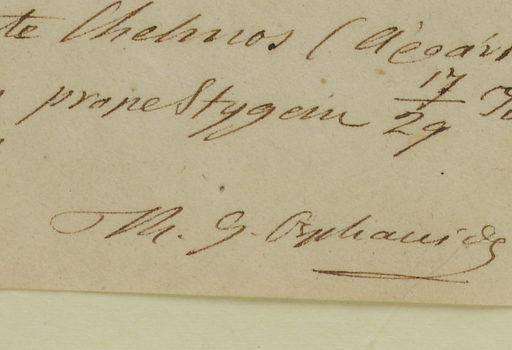 te Chelmos (
prope Stygem 17/29
Th. G. Orphanides